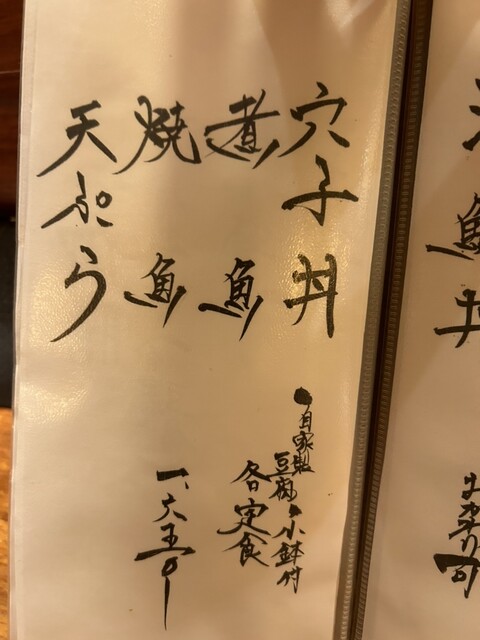 穴子丼
煮魚
焼魚
天ぷら
●自家製
豆腐・小鉢付
各定食
一、六五〇ー